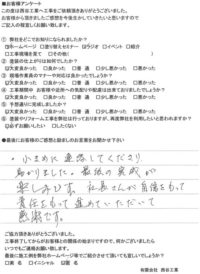 ■お客様アンケート
この度は西谷工業へ工事をご依頼頂きありがとうございました。
お客様から頂きましたご感想を今後生かしていきたいと思いますので
ご記入の程宜しくお願い致します。
① 弊社をどこでお知りになられましたか?
☑ホームページ □塗り替えセミナー □ラジオ □イベント □紹介
□工事現場を見て □その他( )
② 塗装の仕上がりは如何でしたか?
☑大変良かった □良かった □普通 □少し悪かった □悪かった
③ 現場作業員のマナーや対応は良かったでしょうか?
☑大変良かった □良かった □普通 □少し悪かった □悪かった
④ 工事期間中 お客様や近所への気配りや配慮は出来ておりましたでしょうか?
☑大変良かった □良かった □普通 □少し悪かった □悪かった
⑤ 予想通りに完成しましたか?
☑大変良かった □良かった □普通 □少し悪かった □悪かった
⑥ 塗装やリフォーム工事を弊社は行っておりますが、再度弊社を利用したいと思われますか?
☑必ずお願いしたい □したくない
■最後にお客様のご感想と励ましのお言葉をお聞かせ下さい
・小まめに連絡してくださり
助かりました。最後の完成が
楽しみです。社長さんが自信をもって
責任をもって進めていただいて
感謝です。
ご協力頂きありがとうございました。
工事終了してからがお客様との関係の始まりですので、何かございました
いつでもご連絡お願い致します。
最後に施工例を弊社のホームページ等でご紹介させて頂いても宜しいでしょうか?
□実名 □イニシャル ☑匿名
有限会社 西谷工業